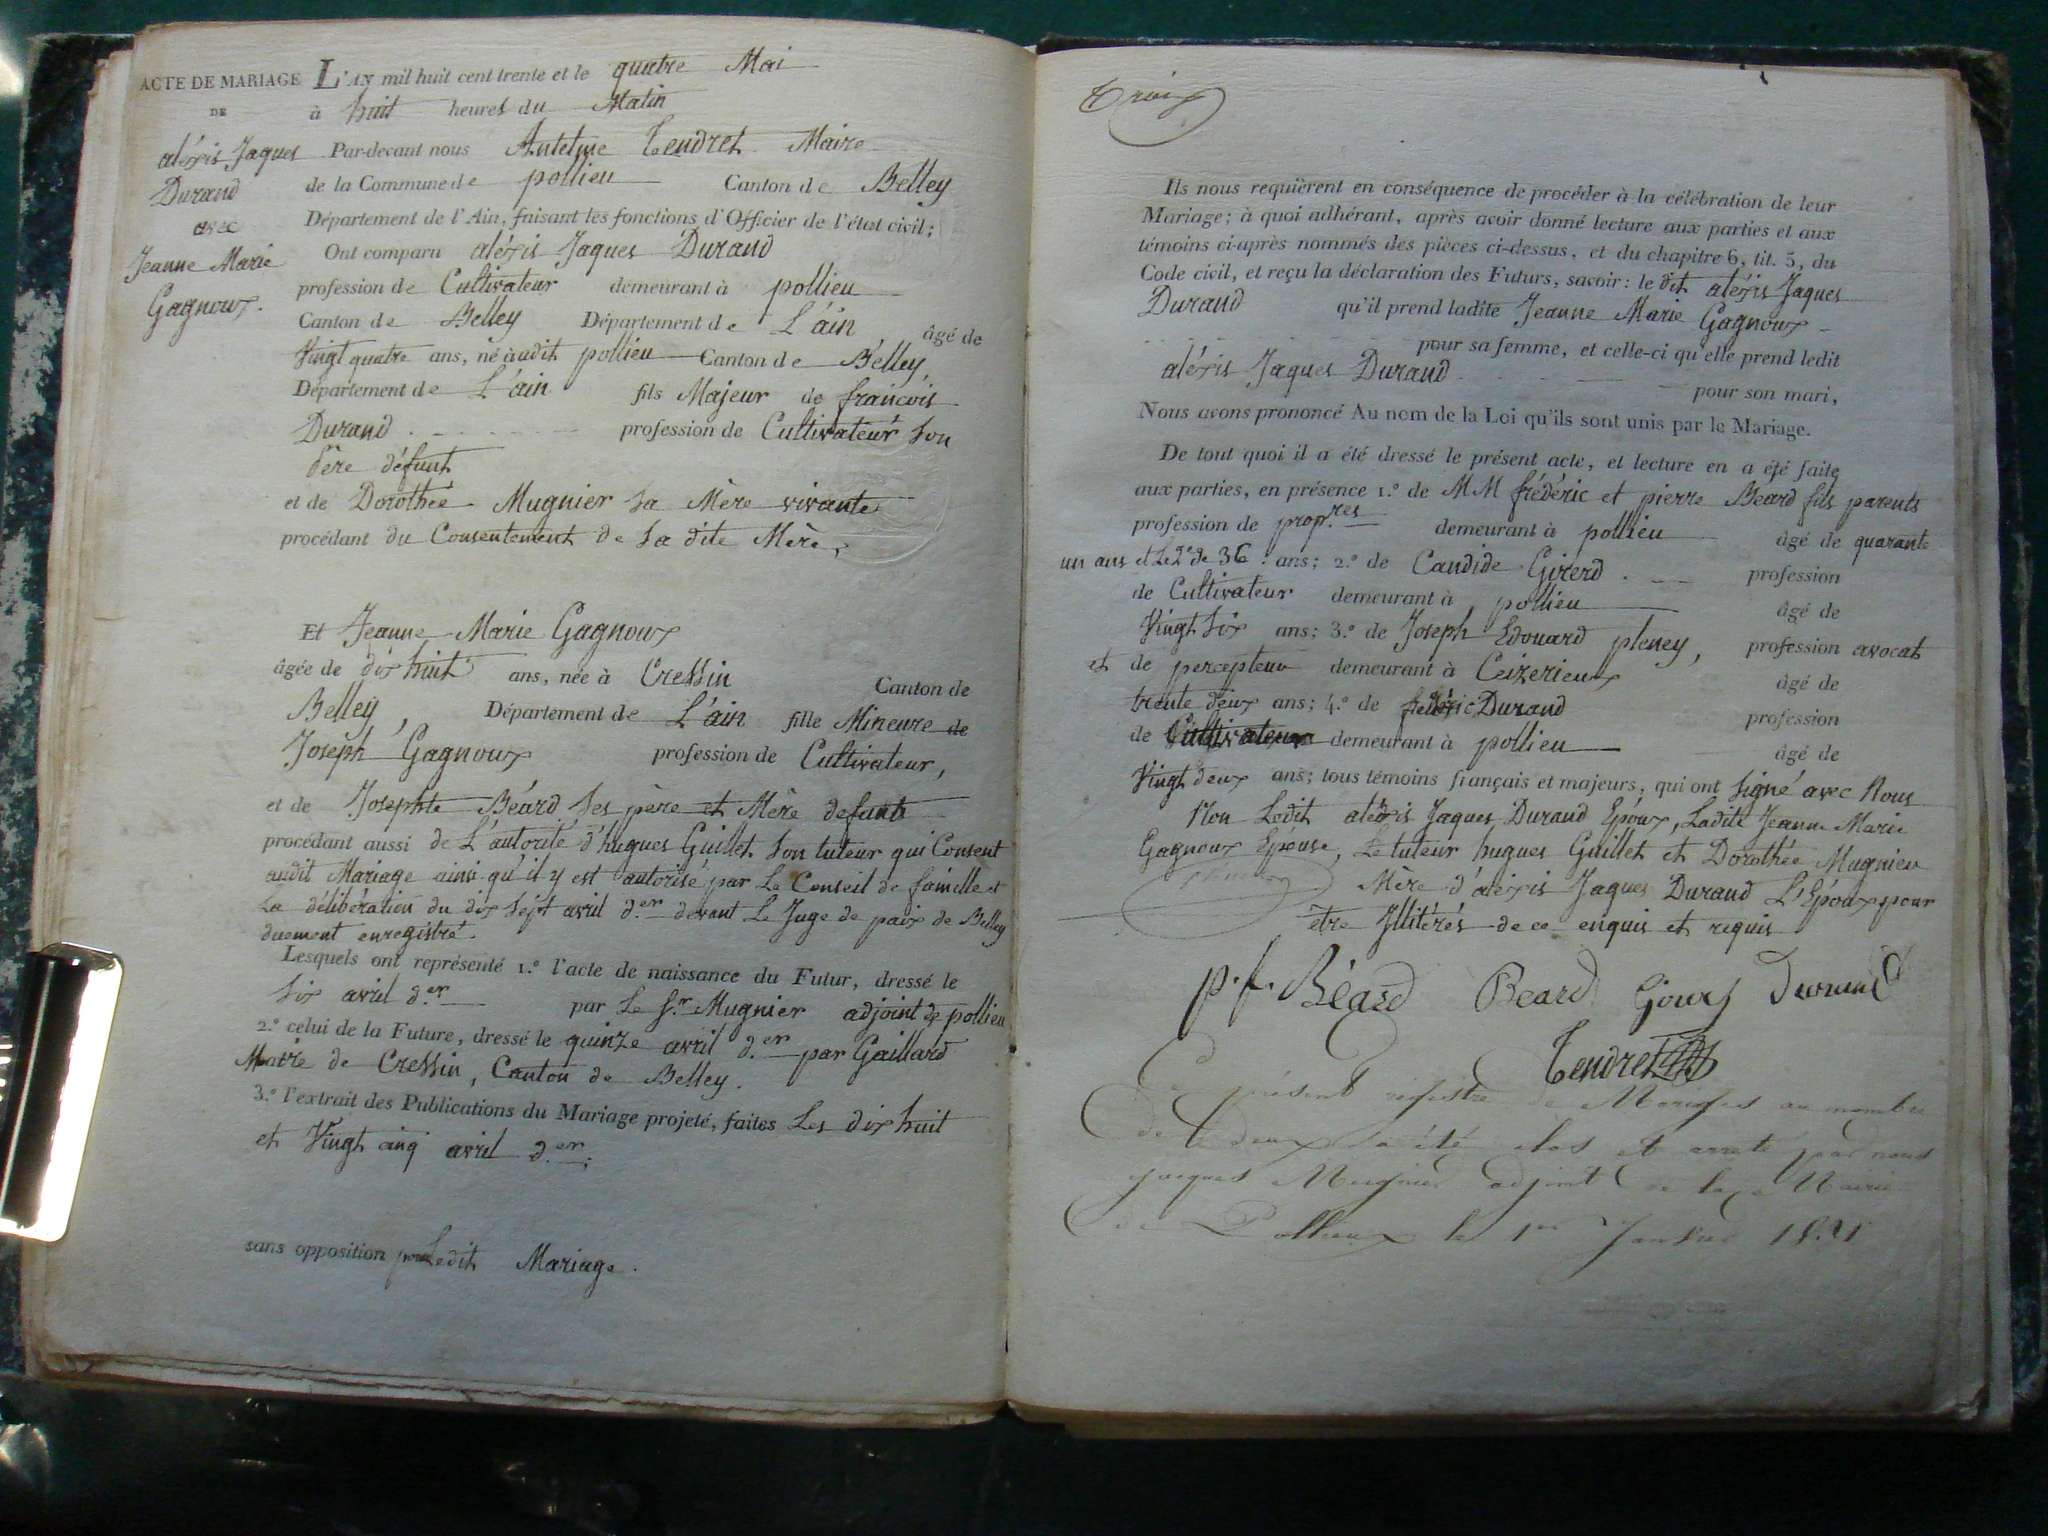 ACTE DE MARIAGE
DE
aléxis Jaques
Durand
avec
Jeanne Marie
Gagnoux.
L'AN mil huit cent trente et le quatre Mai
à huit heures du Matin
Par-devant nous Antelme Tendret Maire
de la Commune de pollieu Canton de Belley
Département de l'Ain, faisant les fonctions d'Officier de l'état civil;
Ont comparu aléxis Jaques Durand
profession de Cultivateur demeurant à pollieu
Canton de Belley Département de L'ain âgé de
Vingt quatre ans, né audit pollieu Canton de Belley,
Département de L'ain fils Majeur de francois
Durand profession de Cultivateur Son
Père défunt
et de Dorothée Mugnier Sa Mère vivante
procédant du Consentement de Sa dite Mère,
Et Jeanne Marie Gagnoux
âgée de dix huit ans, née à Cressin Canton de
Belley, Département de L'ain fille Mineure de
Joseph Gagnoux profession de Cultivateur,
et de Josephte Béard Ses père et Mère defunts
procédant aussi de L'autorité d'hugues Guillet Son tuteur qui Consent
audit Mariage ainsi qu'il y est autorisé par Le Conseil de famille et
La délibération du dix Sept avril d.er devant Le Juge de paix de Belley
duement enregistré.
Lesquels ont représenté 1.º l'acte de naissance du Futur, dressé le
Six avril d.er par Le S.r Mugnier adjoint de pollieu
2.º celui de la Future, dressé le quinze avril d.er par Gaillard
Maire de Cressin, Canton de Belley.
3.º l'extrait des Publications du Mariage projeté, faites Les dix huit
et Vingt cinq avril d.er;
sans opposition pour Ledit Mariage.
Trois
Ils nous requièrent en conséquence de procéder à la célébration de leur
Mariage; à quoi adhérant, après avoir donné lecture aux parties et aux
témoins ci-après nommés des pièces ci-dessus, et du chapitre 6, tit. 5, du
Code civil, et reçu la déclaration des Futurs, savoir: le dit aléxis Jaques
Durand qu'il prend ladite Jeanne Marie Gagnoux
pour sa femme, et celle-ci qu'elle prend ledit
aléxis Jaques Durand
pour son mari,
Nous avons prononcé Au nom de la Loi qu'ils sont unis par le Mariage.
De tout quoi il a été dressé le présent acte, et lecture en a été faite
aux parties, en présence 1.º de MM frédéric et pierre Beard fils parents
profession de prop.res demeurant à pollieu âgé de quarante
un ans et Le 2e de 36 ans; 2.º de Candide Girerd profession
de Cultivateur demeurant à pollieu âgé de
Vingt Six ans; 3.º de Joseph Edouard pleney, profession avocat
et de percepteur demeurant à Ceizerieux âgé de
trente deux ans; 4.º de frédéric Durand profession
de Cultivateur demeurant à pollieu âgé de
Vingt deux ans; tous témoins français et majeurs, qui ont Signé avec Nous
Non Ledit aléxis Jaques Durand Epoux, Ladite Jeanne Marie
Gagnoux Epouse, Le tuteur hugues Guillet et Dorothée Mugnier
Mère d'aléxis Jaques Durand L'Epoux pour
être Illitérés de ce enquis et requis
p. f. Béard Beard Durand
Tendret
Le présent registre de Mariages au nombre
de deux a été clos et arreté par nous
jacques Mugnier adjoint de la Mairie
de Pollieux le 1er Janvier 1831